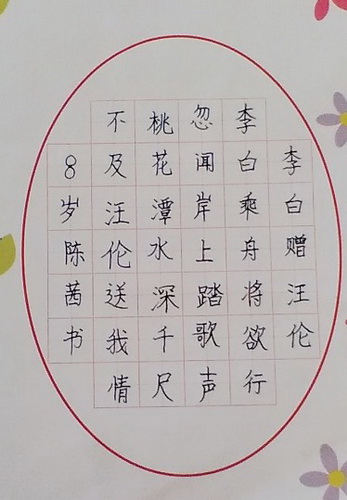 李白赠汪伦
李白乘舟将欲行
忽闻岸上踏歌声
桃花潭水深千尺
不及汪伦送我情
8岁陈茜书